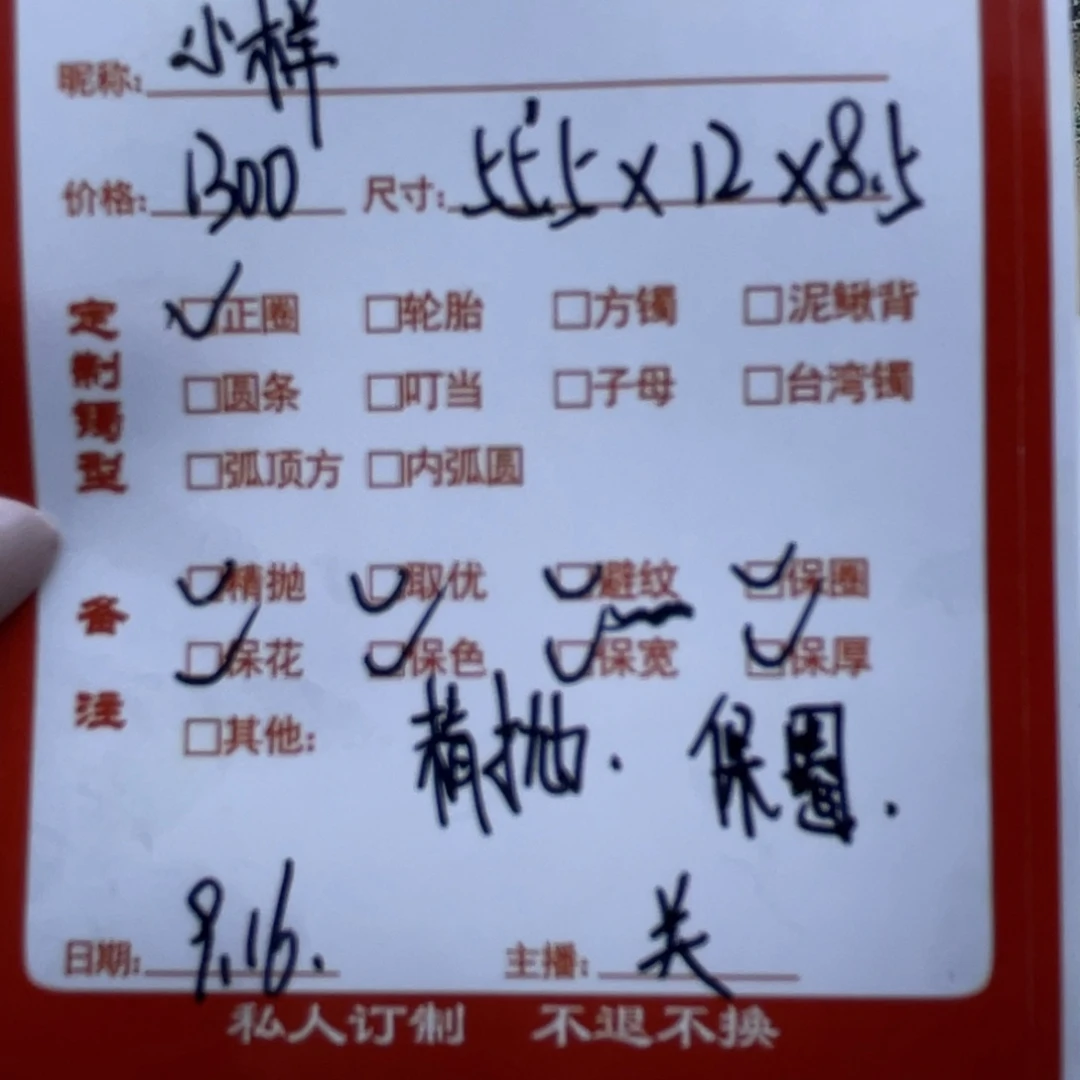 昵称: 小样
价格: 1300 尺寸: 55.5×12×8.5
定制镯型
✓正圈 □轮胎 □方镯 □泥鳅背
□圆条 □叮当 □子母 □台湾镯
□弧顶方 □内弧圆
备注
✓精抛 ✓取优 ✓避纹 ✓保圈
✓保花 ✓保色 ✓保宽 ✓保厚
□其他: 精抛. 保圈.
日期: 9.16. 主播: 关
私人订制 不退不换